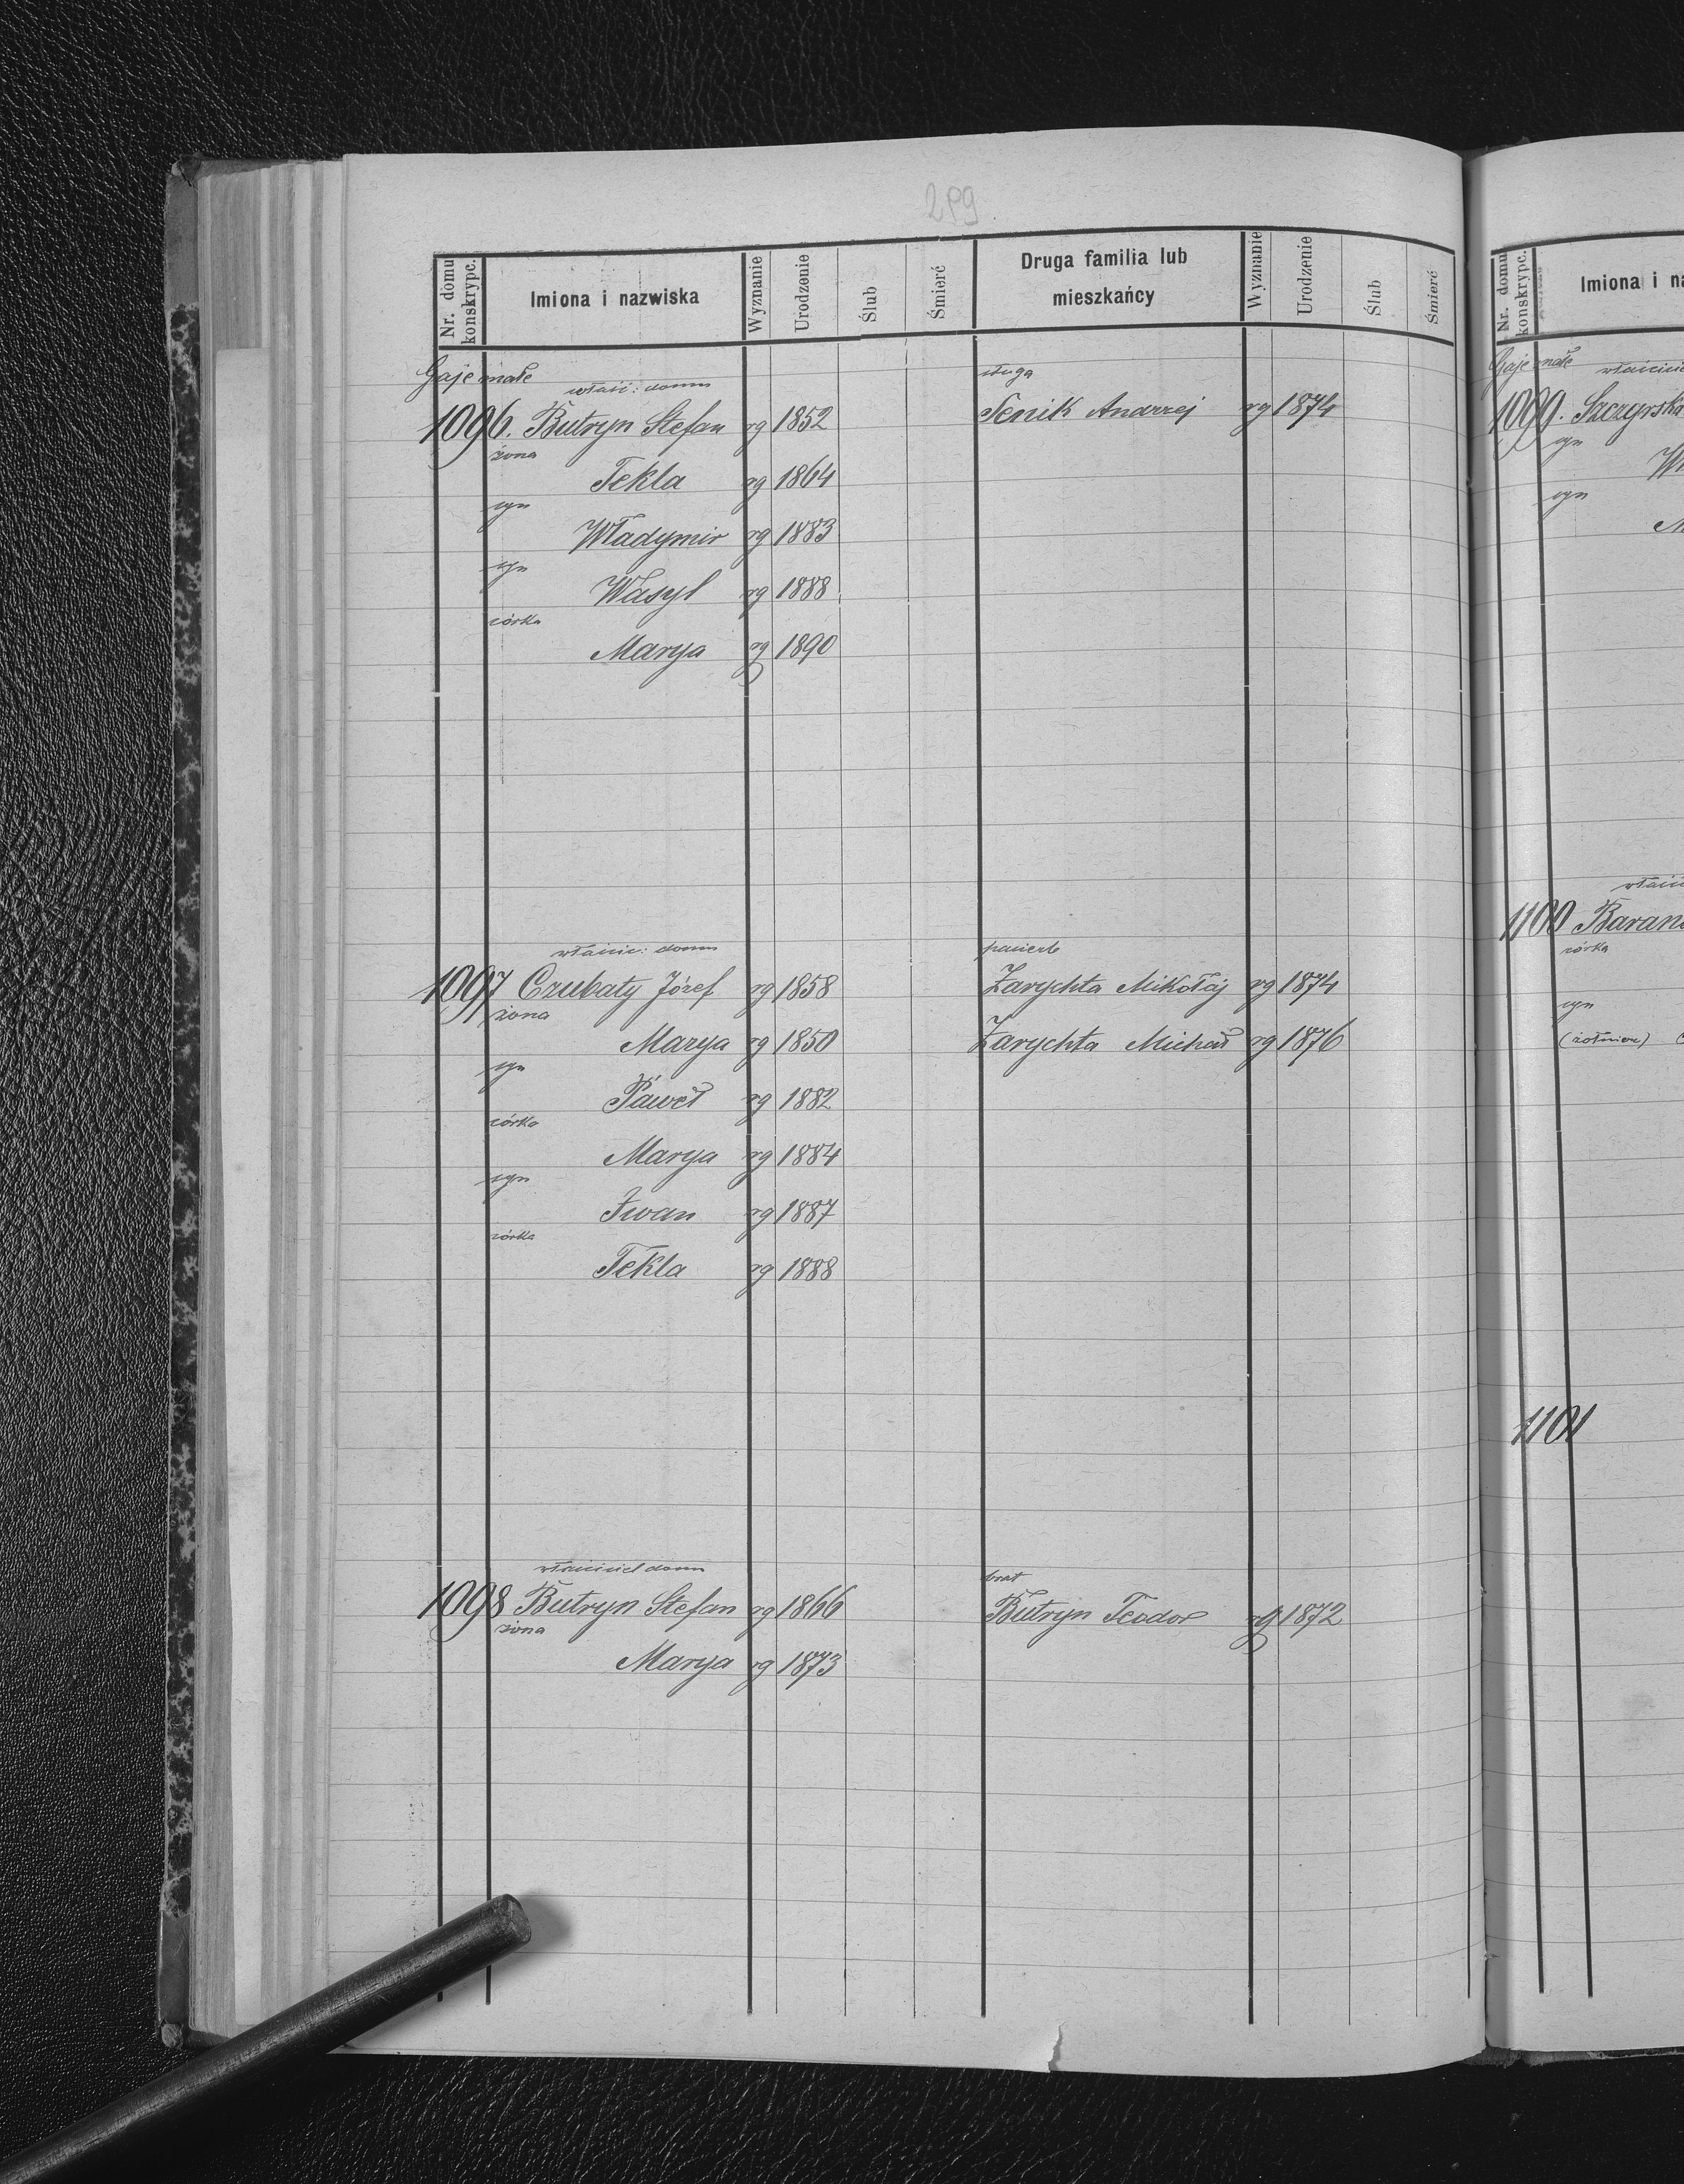 299
Nr. domu konskrypc.
Imiona i nazwiska
Wyznanie
Urodzenie
Ślub
Śmierć
Druga familia lub
mieszkańcy
Wyznanie
Urodzenie
Ślub
Śmierć
Gaje małe
właść: domu
sługa
1096. Butryn Stefan rg 1852
Senik Andrzej rg 1874
żona
Tekla rg 1864
syn
Władymir rg 1883
syn
Wasyl rg 1888
córka
Marya rg 1890
właścic: domu
pasierb
1097 Czubaty Józef rg 1858
Zarychta Mikołaj rg 1874
żona
Marya rg 1850
Zarychta Michał rg 1876
syn
Paweł rg 1882
córka
Marya rg 1884
syn
Iwan rg 1887
córka
Tekla rg 1888
właściciel domu
brat
1098 Butryn Stefan rg 1866
Butryn Teodor rg 1872
żona
Marya rg 1873
Nr. domu konskrypc.
Imiona i na
Gaje małe
właścicie
1099. Szczyrska
syn
W
syn
M
właści
1100 Baran
córka
syn
(żołnierz)
1101